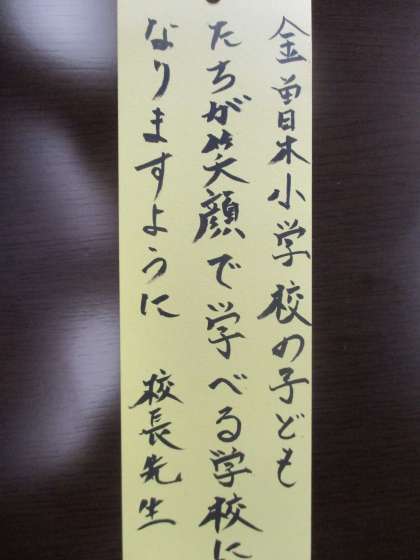 金曽木小学校の子ども
たちが笑顔で学べる学校に
なりますように 校長先生